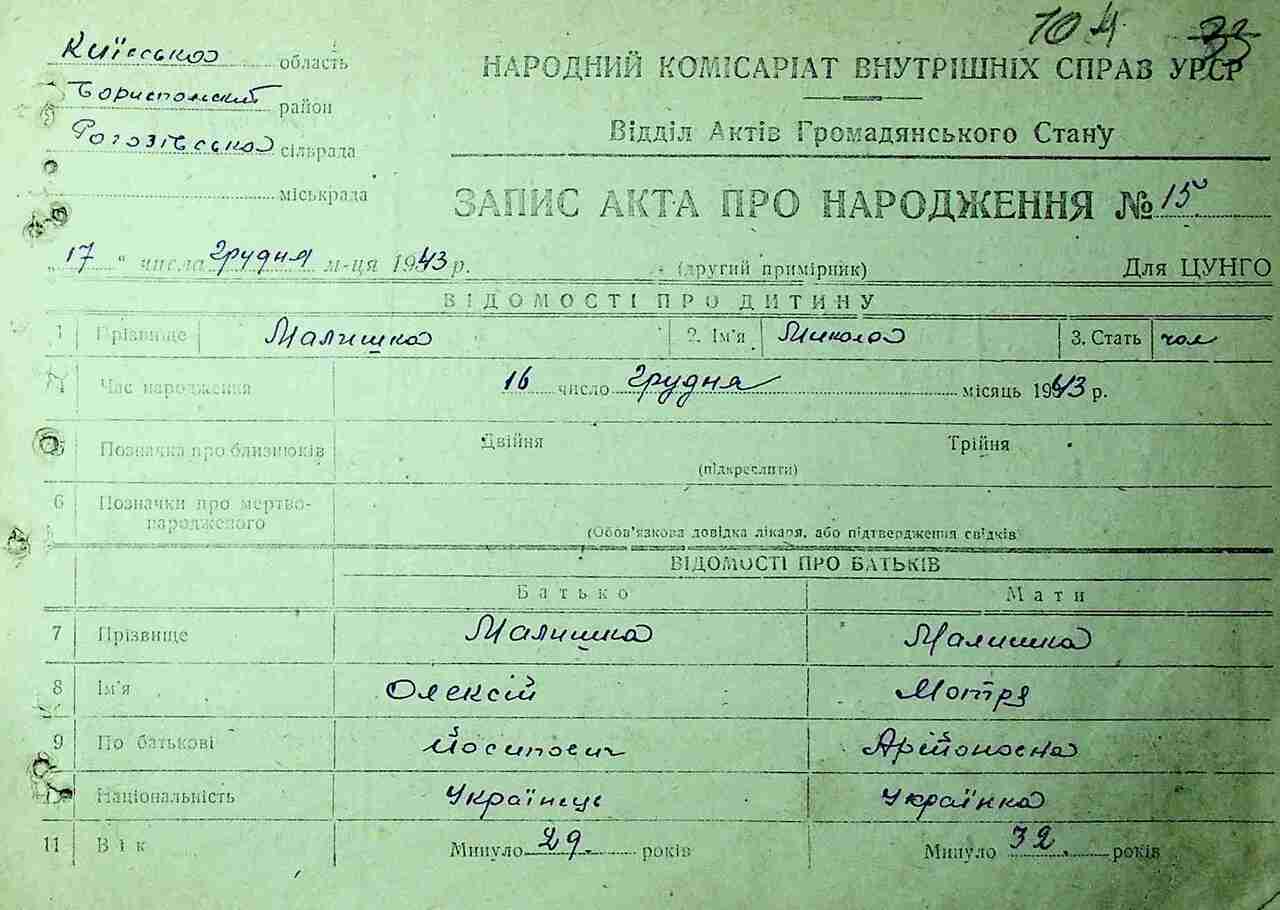 10 А 33
Київська область
Бориспольский район
Рогозівська сільрада
міськрада
НАРОДНИЙ КОМІСАРІАТ ВНУТРІШНІХ СПРАВ УРСР
Відділ Актів Громадянського Стану
ЗАПИС АКТА ПРО НАРОДЖЕННЯ № 15
„17“ числа грудня м-ця 1943 р. (другий примірник) Для ЦУНГО
ВІДОМОСТІ ПРО ДИТИНУ
1 Прізвище Малишка 2. Ім'я Микола 3. Стать чол
4 Час народження 16 число грудня місяць 1943 р.
5 Позначка про близнюків Двійня Трійня
(підкреслити)
6 Позначки про мертво-
народженого (Обов'язкова довідка лікаря, або підтвердження свідків)
ВІДОМОСТІ ПРО БАТЬКІВ
Батько Мати
7 Прізвище Малишка Малишка
8 Ім'я Олексій Мотря
9 По батькові Йосипович Арійоновна
10 Національність Українець Українка
11 Вік Минуло 29. років Минуло 32. років